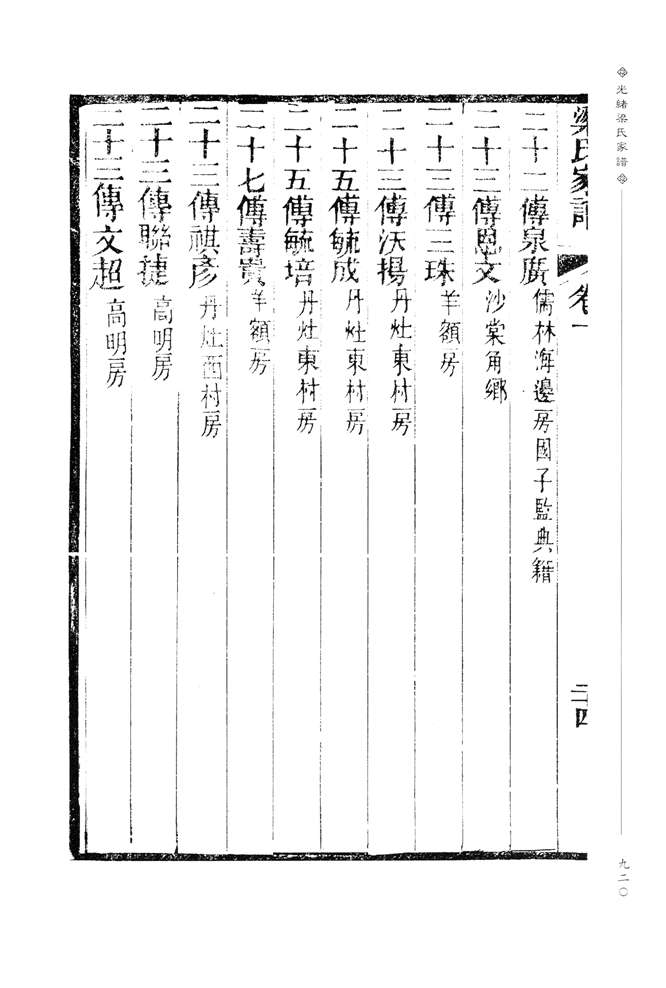 光緒梁氏家譜
梁氏家譜 卷一 二四
二十二傳泉廣 儒林海邊房國子監典籍
二十三傳恩文 沙棠角鄉
二十三傳三珠 羊額房
二十三傳沃揚 丹灶東村房
二十五傳毓成 丹灶東村房
二十五傳毓培 丹灶東村房
二十七傳壽貴 羊額房
二十三傳祺彥 丹灶西村房
二十三傳聯捷 高明房
二十三傳文超 高明房
九二〇